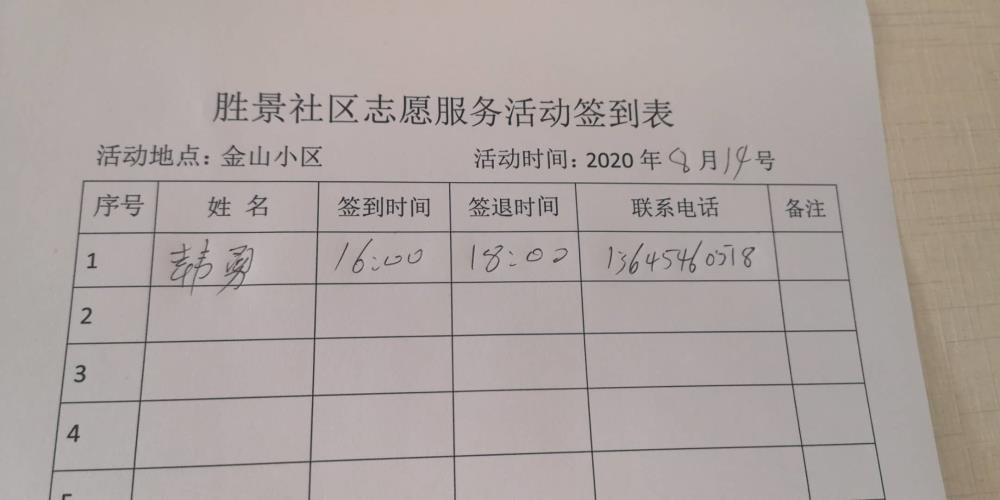 胜景社区志愿服务活动签到表
活动地点：金山小区 活动时间：2020年8月14号
序号 姓名 签到时间 签退时间 联系电话 备注
1 韩勇 16:00 18:00 13645460518
2
3
4
5